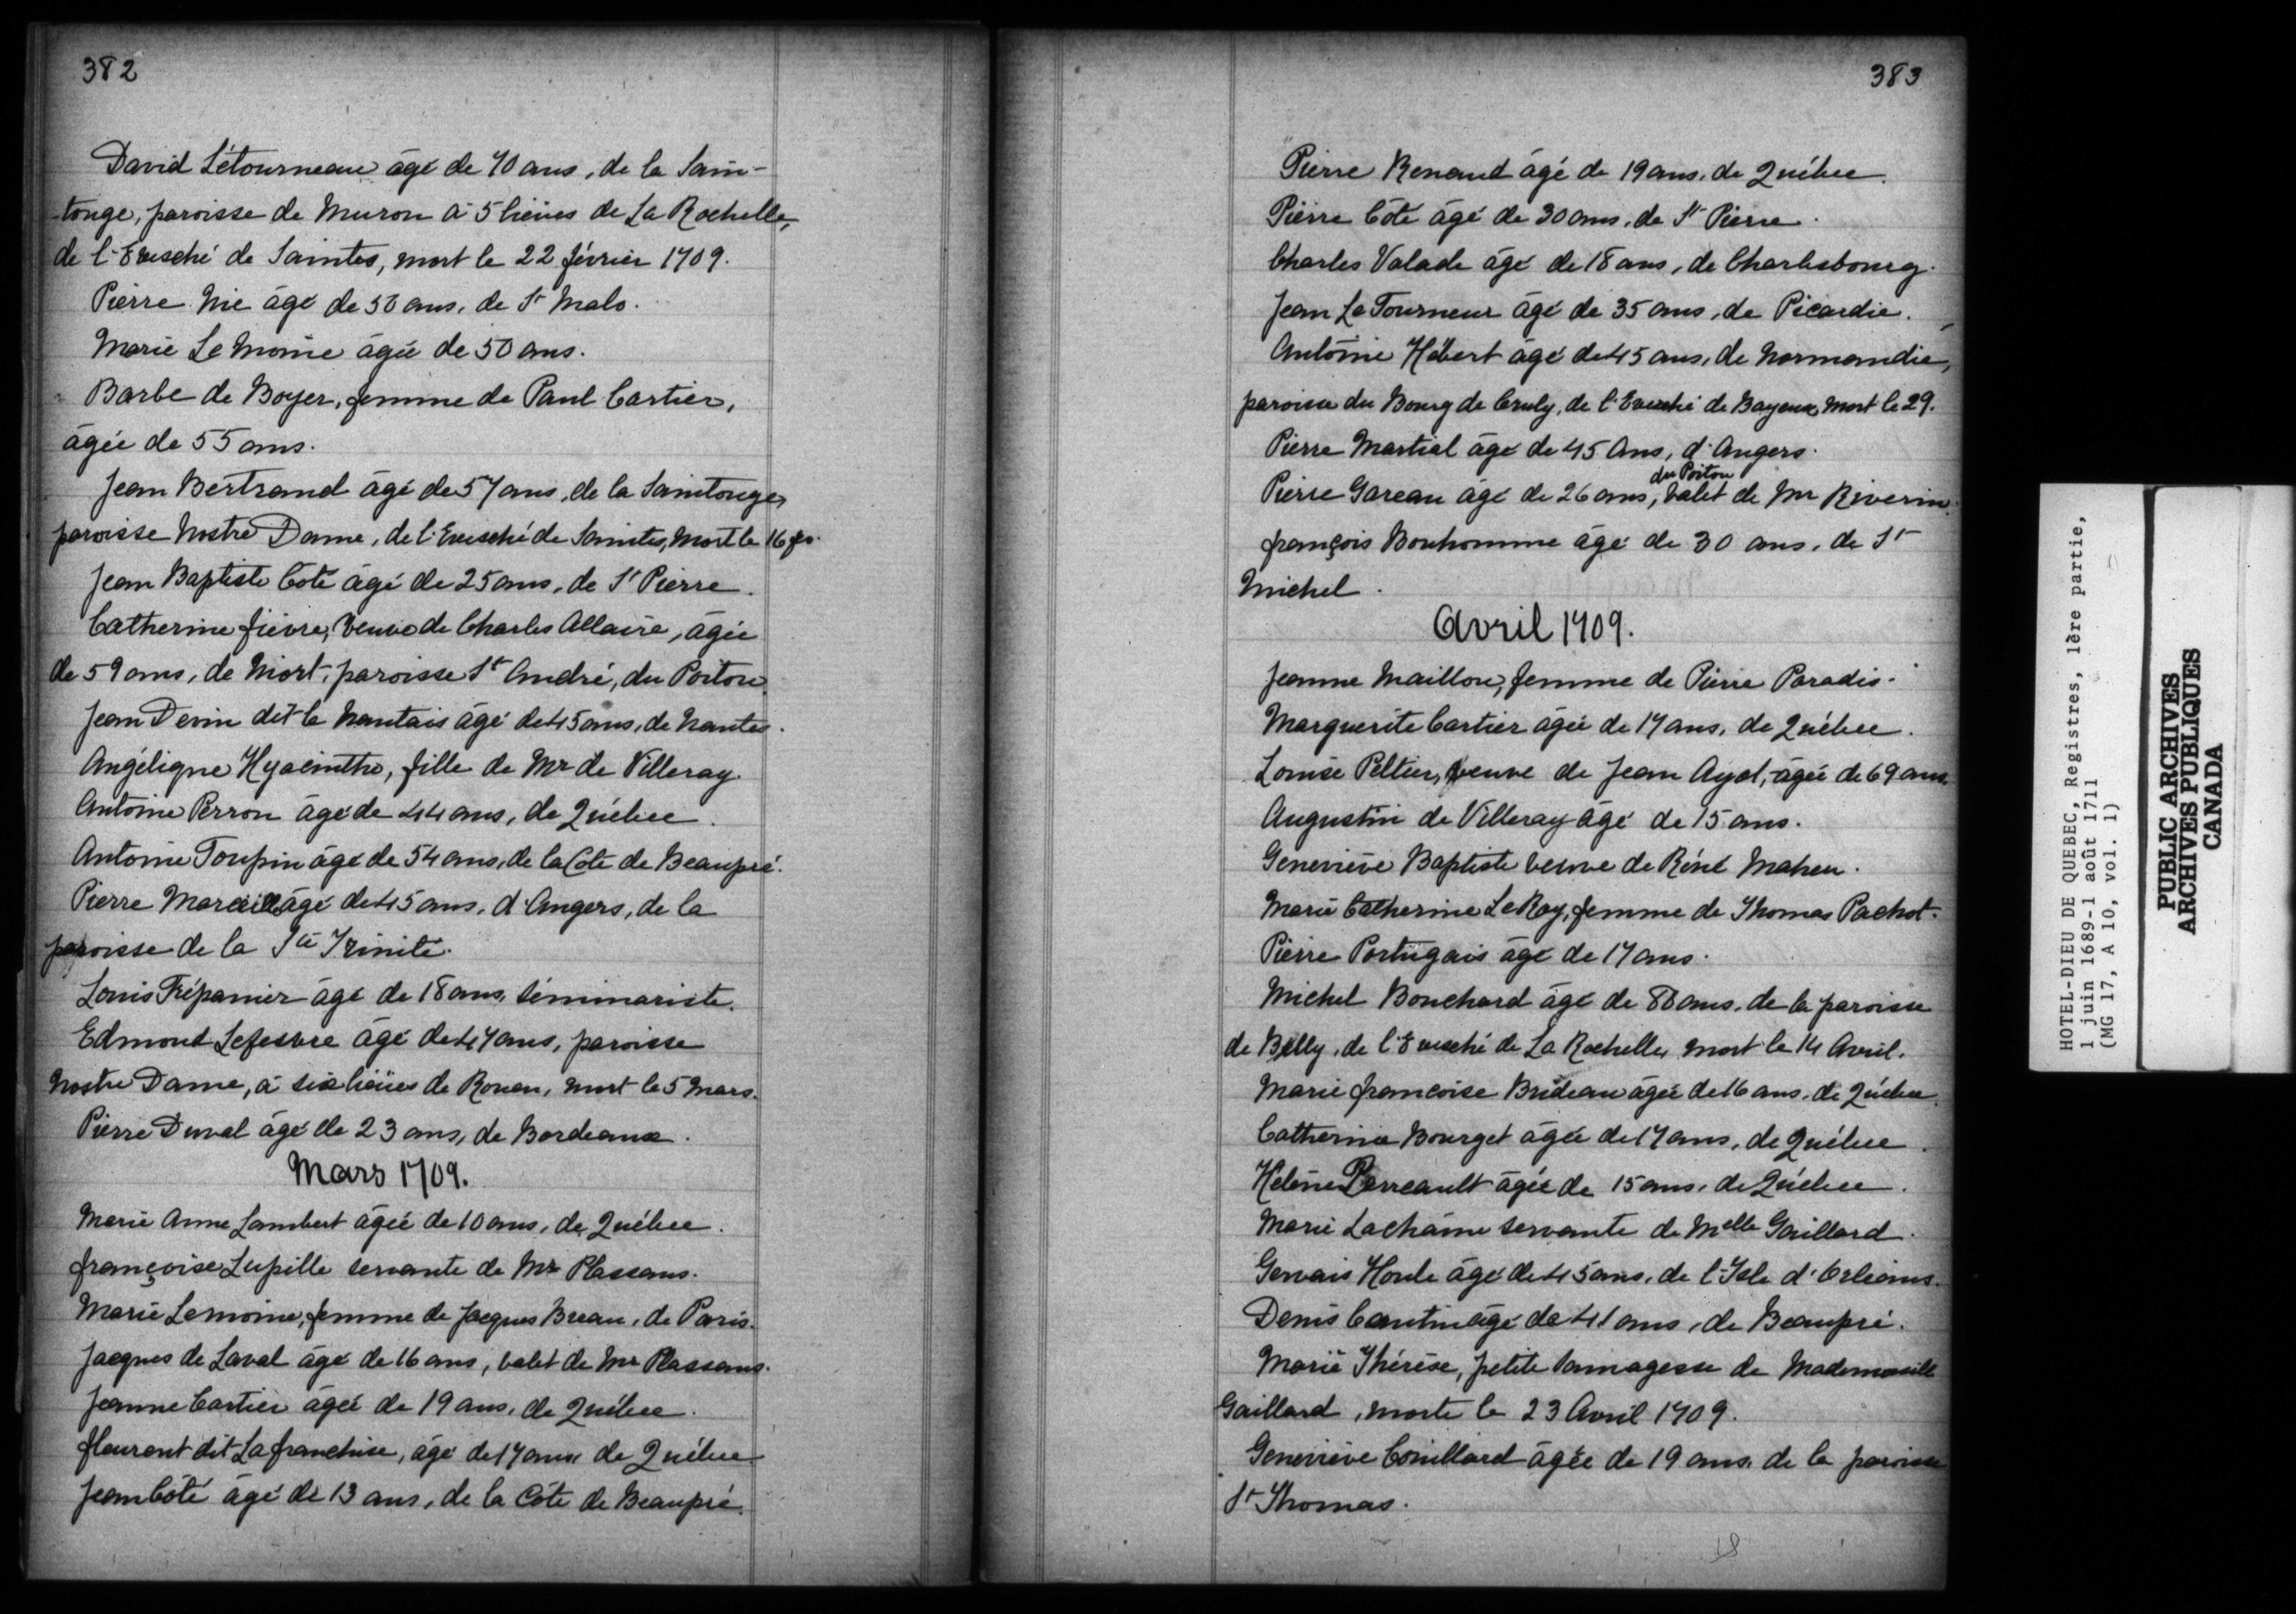 382
David Létourneau âgé de 70 ans, de la Sain-
-tonge, paroisse de Muron à 5 liëues de La Rochelle,
de l'Evesché de Saintes, mort le 22 février 1709.
Pierre Nie âgé de 50 ans, de St Malo.
Marie Le Moine âgée de 50 ans.
Barbe de Boyer, femme de Paul Cartier,
âgée de 55 ans.
Jean Bertrand âgé de 57 ans, de la Saintonge,
paroisse Nostre Dame, de l'Evesché de Saintes, mort le 16 fév.
Jean Baptiste Coté âgé de 25 ans, de St Pierre.
Catherine fièvre, veuve de Charles Allaire, âgée
de 59 ans, de Niort, paroisse St André, du Poitou.
Jean Devin dit le Nantais âgé de 45 ans, de Nantes.
Angélique Hyacinthe, fille de Mr de Villeray.
Antoine Perron âgé de 44 ans, de Québec.
Antoine Toupin âgé de 54 ans, de la Cote de Beaupré.
Pierre Marcill âgé de 45 ans, d'Angers, de la
paroisse de la Ste Trinité.
Louis Trépanier âgé de 18 ans, séminariste.
Edmond Lefesvre âgé de 47 ans, paroisse
Nostre Dame, à six liëues de Rouen, mort le 5 Mars.
Pierre Duval âgé de 23 ans, de Bordeaux.
Mars 1709.
Marie Anne Lambert âgée de 10 ans, de Québec.
françoise Lupille servante de Mr Plassans.
Marie Lemoine, femme de Jacques Breau, de Paris.
Jacques de Laval âgé de 16 ans, valet de Mr Plassans.
Jeanne Cartier âgée de 19 ans, de Québec.
fleurent dit Lafranchise, âgé de 17 ans de Québec
Jean Côté âgé de 13 ans, de la Côte de Beaupré.
383
Pierre Renaud âgé de 19 ans, de Québec.
Pierre Côté âgé de 30 ans, de St Pierre.
Charles Valade âgé de 18 ans, de Charlesbourg.
Jean Le Tourneur âgé de 35 ans, de Picardie.
Antoine Hébert âgé de 45 ans, de Normandie,
paroisse du Bourg de Cruly, de l'Evesché de Bayeux, mort le 29.
Pierre Martial âgé de 45 Ans, d'Angers.
du Poitou
Pierre Gareau âgé de 26 ans, valet de Mr Riverin.
françois Bonhomme âgé de 30 ans, de St
Michel.
Avril 1709.
Jeanne Maillou, femme de Pierre Paradis.
Marguerite Cartier âgée de 17 ans, de Québec.
Louise Peltier, veuve de Jean Ayot, âgée de 69 ans.
Augustin de Villeray âgé de 15 ans.
Geneviève Baptiste veuve de Réné Maheu.
Marie Catherine LeRoy, femme de Thomas Pachot.
Pierre Portugais âgé de 17 ans.
Michel Bouchard âgé de ans, de la paroisse
de Billy, de l'Evesché de La Rochelle, mort le 14 Avril.
Marie françoise Brideau âgée de 16 ans, de Québec.
Catherine Bourget âgée de 17 ans, de Québec.
Helène Perreault âgée de 15 ans, de Québec.
Marie Lachaine servante de Melle Gaillard.
Gervais Houle âgé de 45 ans, de l'Isle d'Orléans.
Denis Cantin âgé de 41 ans, de Beaupré.
Marie Thérèse, petite sauvagesse de Mademoiselle
Gaillard, morte le 23 Avril 1709.
Geneviève Couillard âgée de 19 ans, de la paroisse
St Thomas.
HOTEL-DIEU DE QUEBEC, Registres, 1ère partie,
1 juin 1689-1 août 1711
(MG 17, A 10, vol. 1)
PUBLIC ARCHIVES
ARCHIVES PUBLIQUES
CANADA